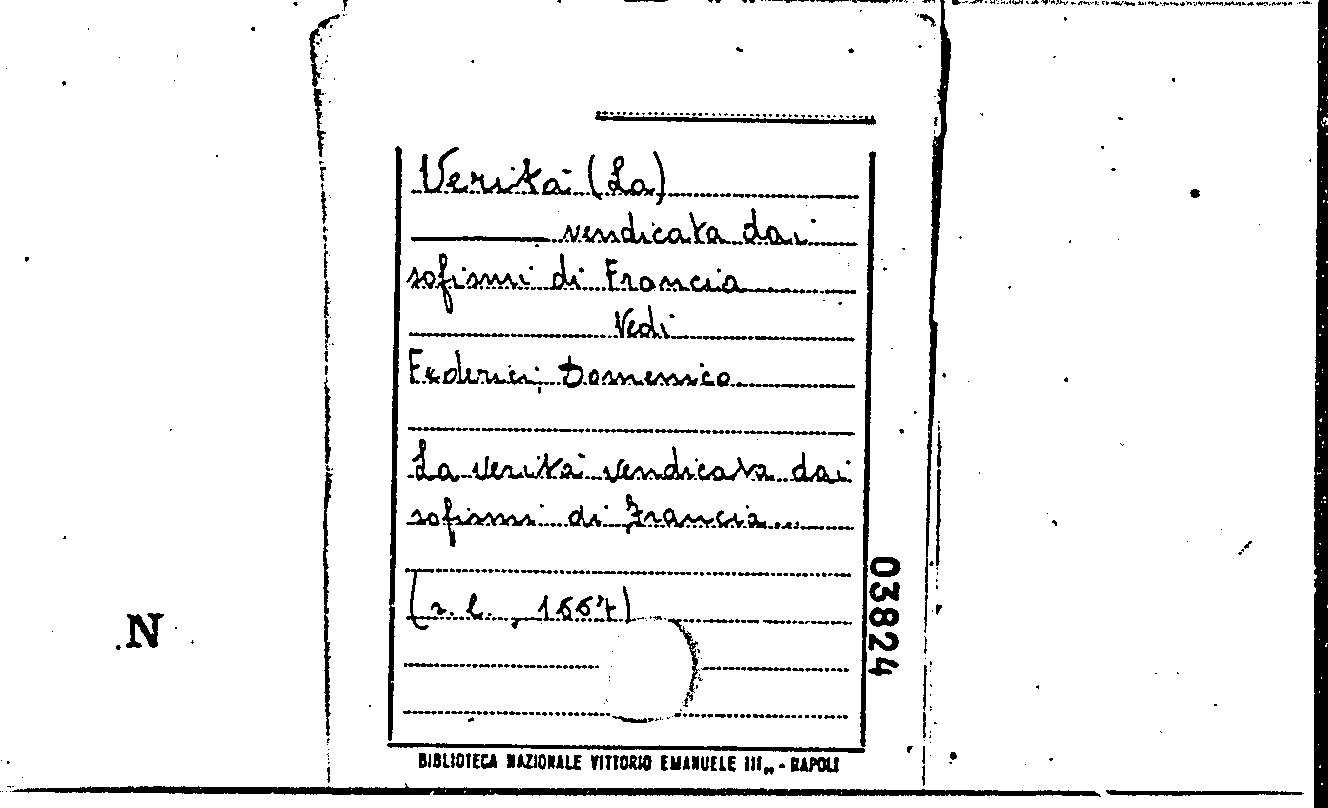 Verità (La)
vendicata dai
sofismi di Francia
Vedi
Federici, Domenico
La verità vendicata dai
sofismi di Francia...
(s. l., 1667)
03824
N
BIBLIOTECA NAZIONALE VITTORIO EMANUELE III„ - NAPOLI